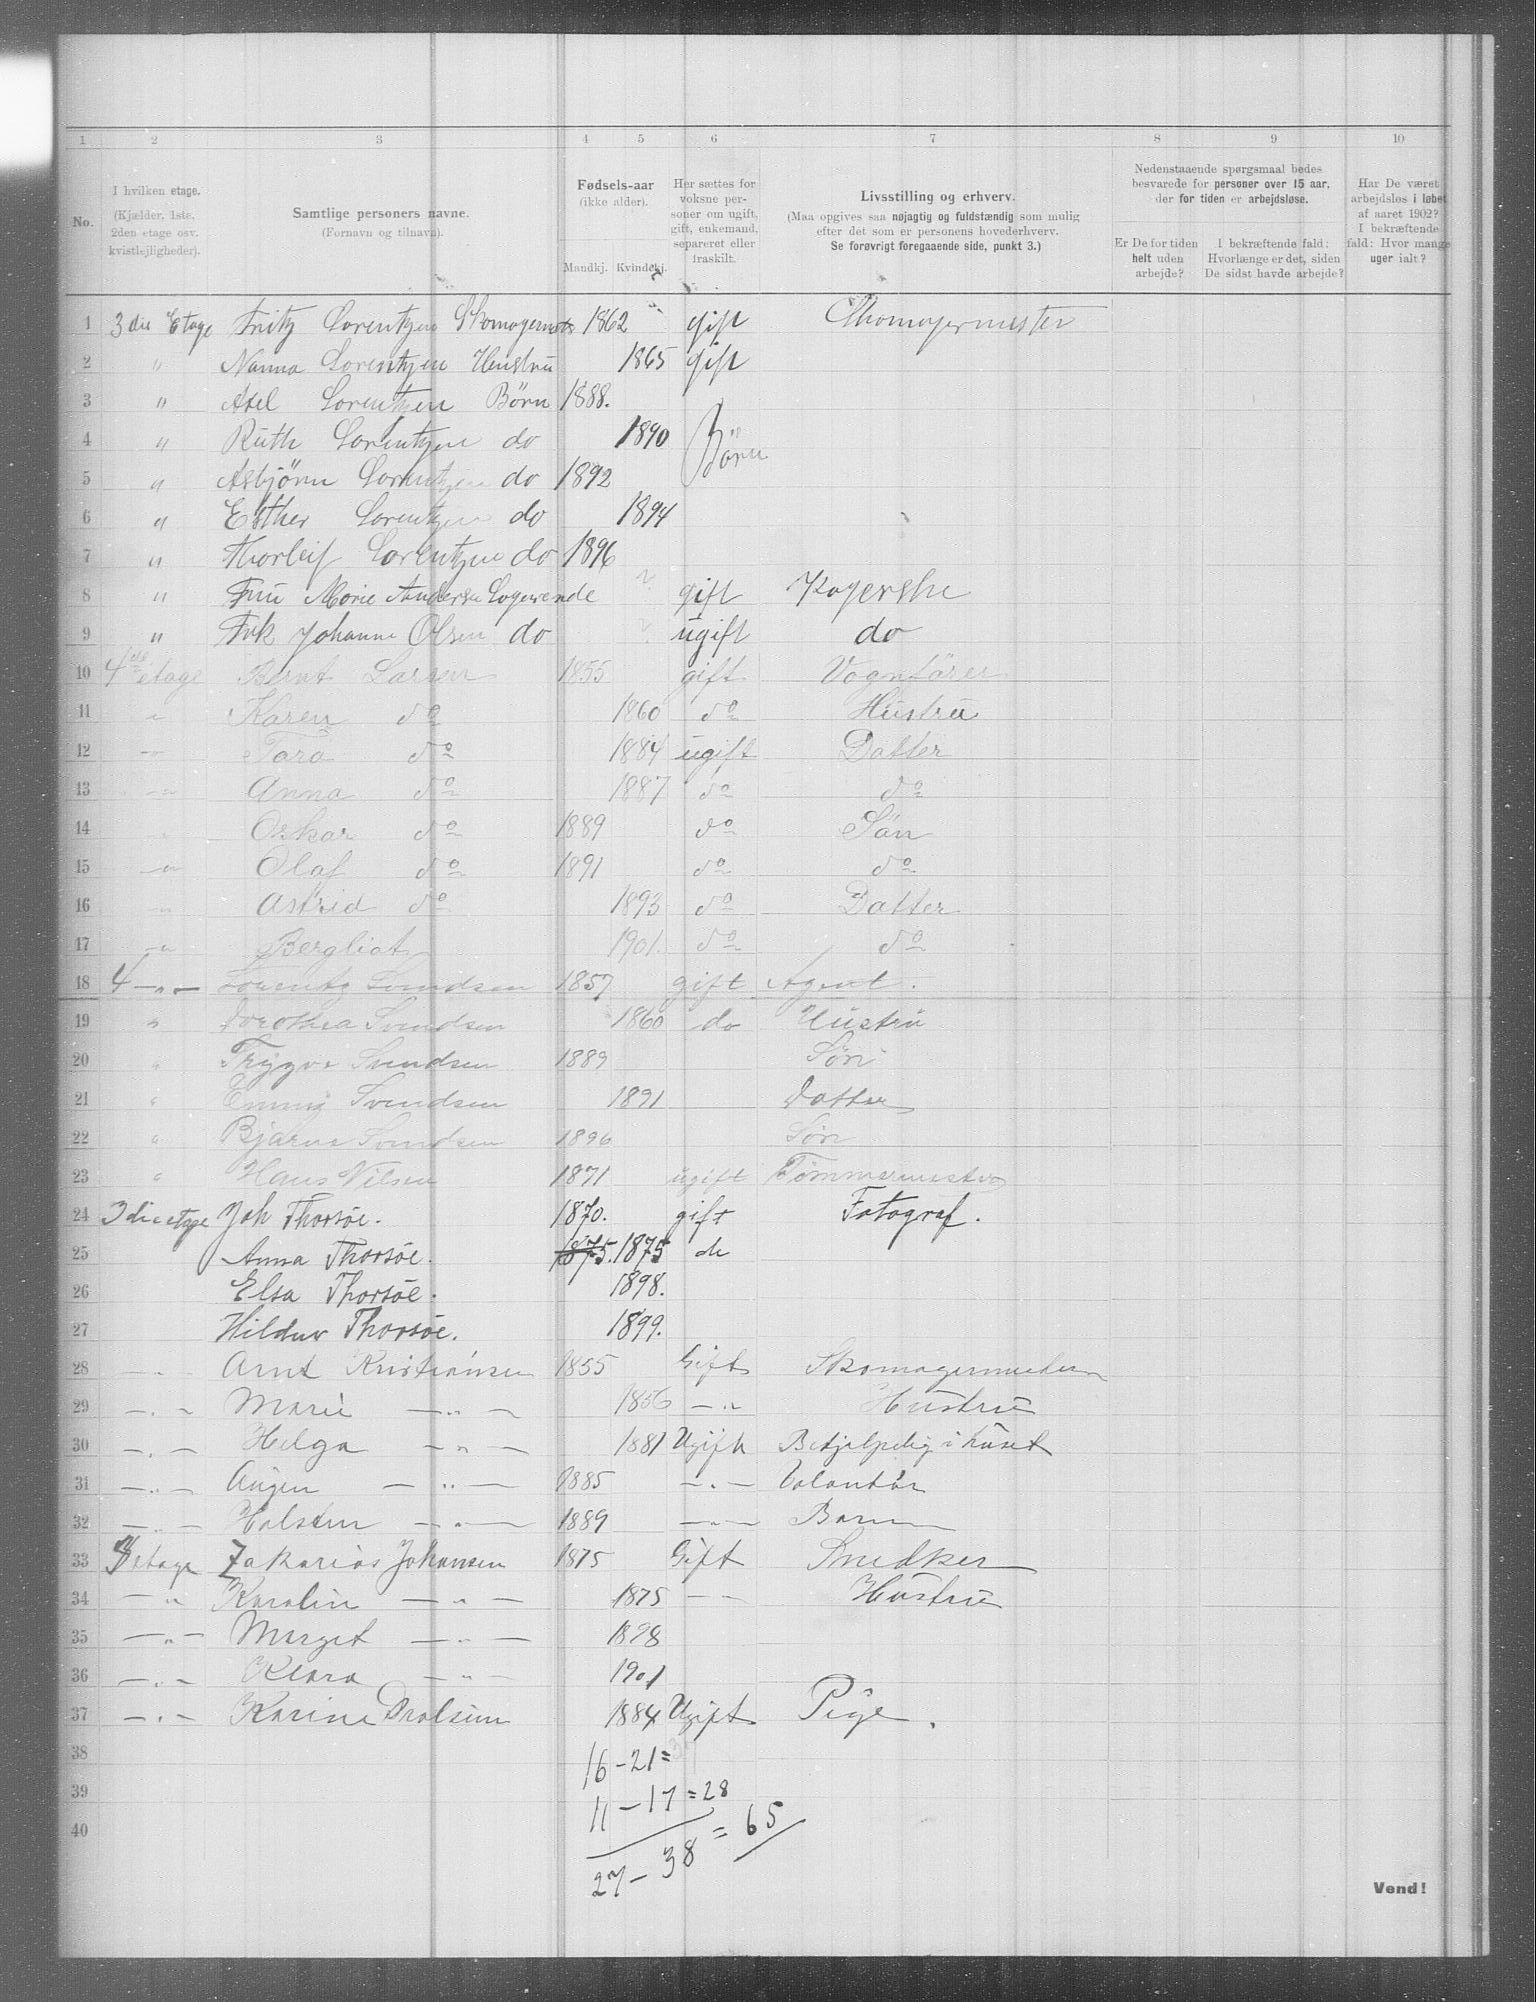 1 2 3 4 5 6 7 8 9 10
No.
I hvilken etage.
(Kjælder, 1ste,
2den etage osv.
kvistlejligheder).
Samtlige personers navne.
(Fornavn og tilnavn).
Fødsels-aar
(ikke alder).
Mandkj. Kvindekj.
Her sættes for
voksne per-
soner om ugift,
gift, enkemand,
separeret eller
fraskilt.
Livsstilling og erhverv.
(Maa opgives saa nøjagtig og fuldstændig som mulig
efter det som er personens hovederhverv.
Se forøvrigt foregaaende side, punkt 3.)
Nedenstaaende spørgsmaal bedes
besvarede for personer over 15 aar,
der for tiden er arbejdsløse.
Er De for tiden
helt uden
arbejde?
I bekræftende fald:
Hvorlænge er det, siden
De sidst havde arbejde?
Har De været
arbejdsløs i løbet
af aaret 1902?
I bekræftende
fald: Hvor mange
uger ialt?
1 3die Etage Fritz Lorentzen 1862 gift Skomagermester
2 " Nanna Lorentzen Hustru 1865 gift
3 " Axel Lorentzen Børn 1888.
4 " Ruth Lorentzen do 1890 Børn
5 " Asbjörn Lorentzen do 1892
6 " Esther Lorentzen do 1894
7 " Thorleif Lorentzen do 1896
8 " Fru Marie Andersen Logerende ? gift Kogerske
9 " Frk Johanne Olsen do ? ugift do
10 4de etage Bernt Larsen 1855 gift Vognfører
11 " Karen do 1860 do Hustru
12 -"- Tara do 1884 ugift Datter
13 -"- Anna do 1887 do do
14 " Oskar do 1889 do Sön
15 -"- Olaf do 1891 do do
16 " Astrid do 1893 do Datter
17 -"- Bergliot 1901. do do
18 4 -"- Lorentz Svendsen 1857 gift Agent.
19 " Dorothea Svendsen 1860 do Hustru
20 " Trygve Svendsen 1889 Søn
21 " Emmy Svendsen 1891 Datter
22 " Bjarne Svendsen 1896 Søn
23 " Hans Nilsen 1871 ugift Tømmermester
24 3die etage Joh Thorsöe. 1870. gift Fotograf.
25 Anna Thorsöe. 1875. 1875 do
26 Elsa Thorsöe. 1898.
27 Hildur Thorsöe. 1899.
28 -"- Arnt Kristiansen 1855 Gift Skomagermester
29 -"- Marie -"- 1856 -"- Hustru
30 -"- Helga -"- 1881 Ugift Behjelpelig i huset
31 -"- -"- 1885 -"- Volontör
32 -"- Halsten -"- 1889 -"- Barn
33 etage Zakarias Johansen 1875 Gift Snedker
34 -"- Karolin -"- 1875 -"- Hustru
35 -"- Marget -"- 1898
36 -"- Klara -"- 1901
37 -"- Karine 1884 Ugift Pige.
38 16-21=37
39 11-17=28
40 27-38=65
Vend!